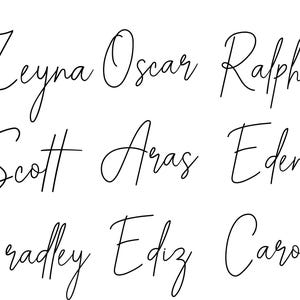 Zeyna Oscar Ralph
Scott Aras Eden
radley Ediz Caro